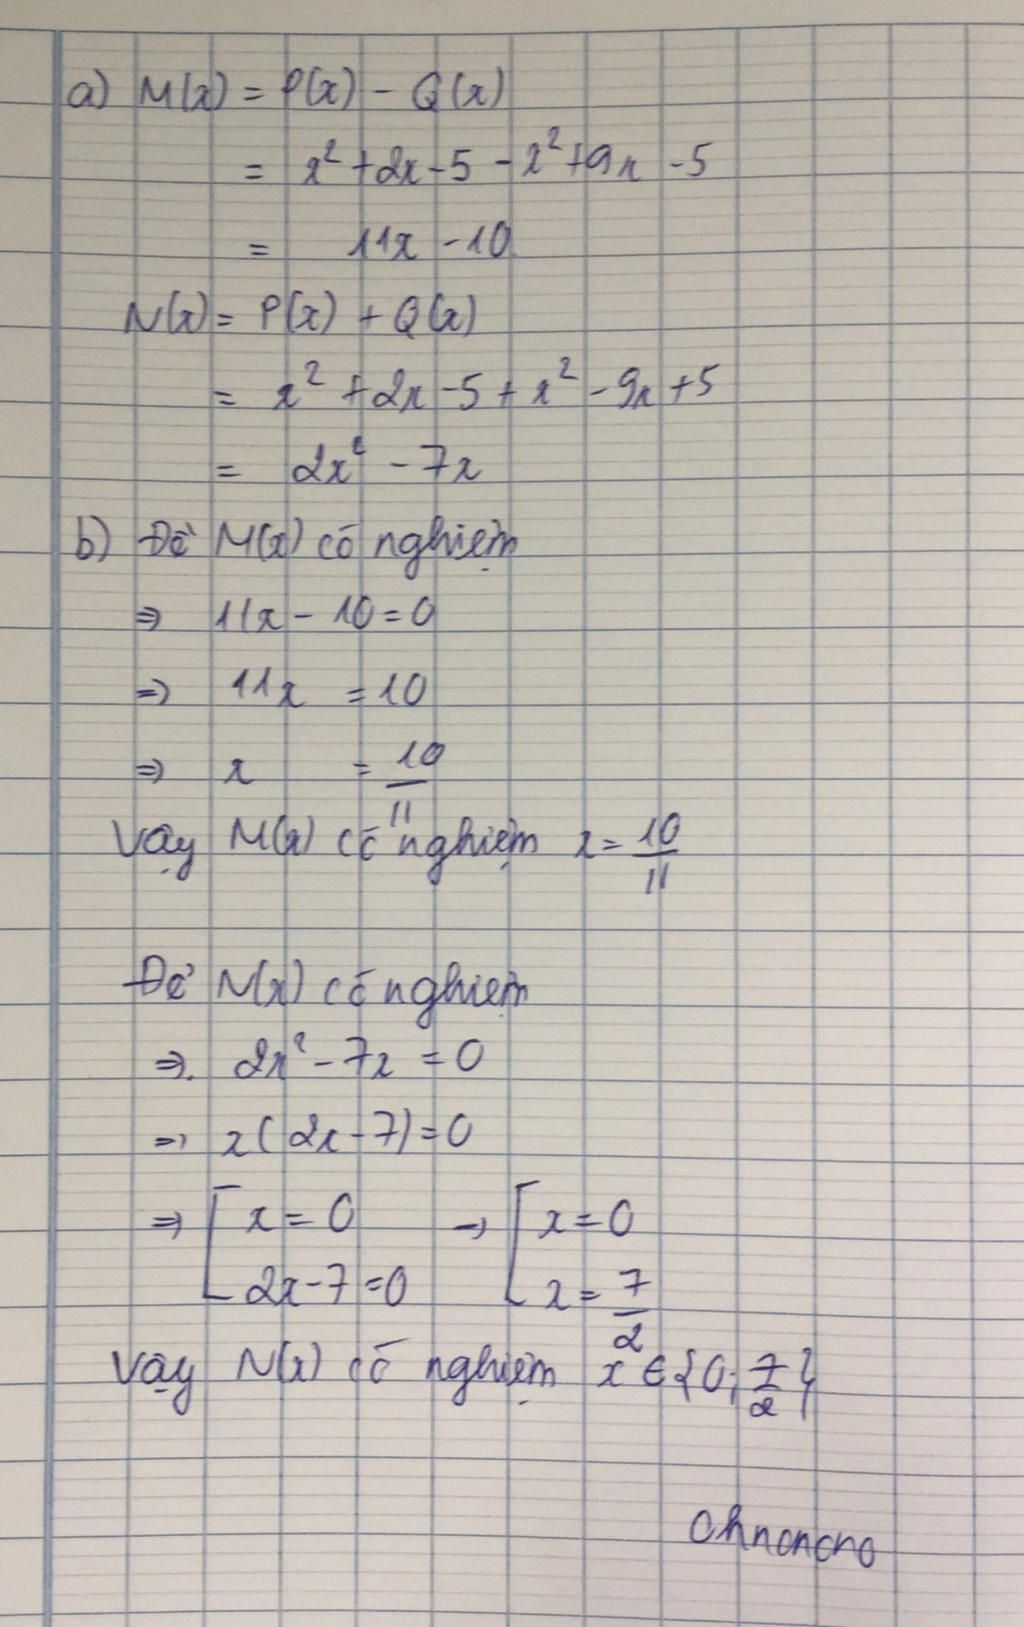 a) M(x) = P(x) - Q(x)
= x² + 2x - 5 - x² + 9x - 5
= 11x - 10
N(x) = P(x) + Q(x)
= x² + 2x - 5 + x² - 9x + 5
= 2x² - 7x
b) Để M(x) có nghiệm
⇒ 11x - 10 = 0
⇒ 11x = 10
⇒ x = 10/11
Vậy M(x) có nghiệm x = 10/11
Để N(x) có nghiệm
⇒ 2x² - 7x = 0
⇒ x(2x - 7) = 0
⇒ [ x = 0 → [ x = 0
2x - 7 = 0 x = 7/2
Vậy N(x) có nghiệm x ∈ {0; 7/2}